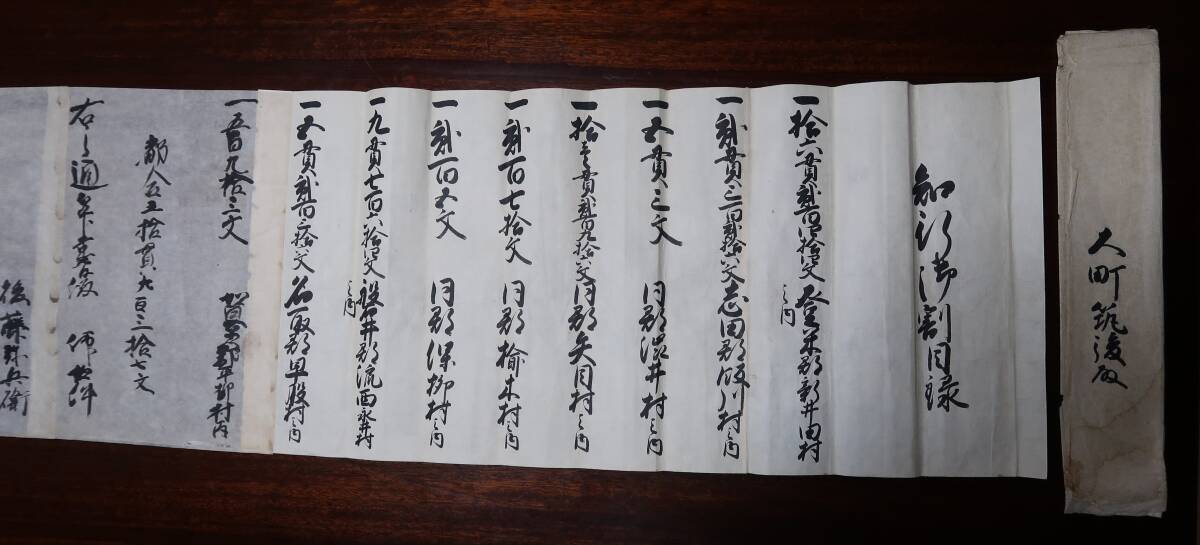 大町筑後殿
知行御割目録
一拾六貫弐百四拾四文 登米郡新井田村
之内
一弐貫三百弐拾六文 志田郡飯川村之内
一五貫三文 同郡渋井村之内
一拾壱貫弐百九拾六文 同郡矢目村之内
一弐百七拾文 同郡楡木村之内
一弐百五文 同郡保柳村之内
一九貫七百六拾四文 磐井郡流西永井村
之内
一五貫弐百六拾六文 名取郡里股村之内
一五百九拾三文 賀美郡平柳村之内
都合五五拾貫九百三拾七文
右之通
後藤孫兵衛